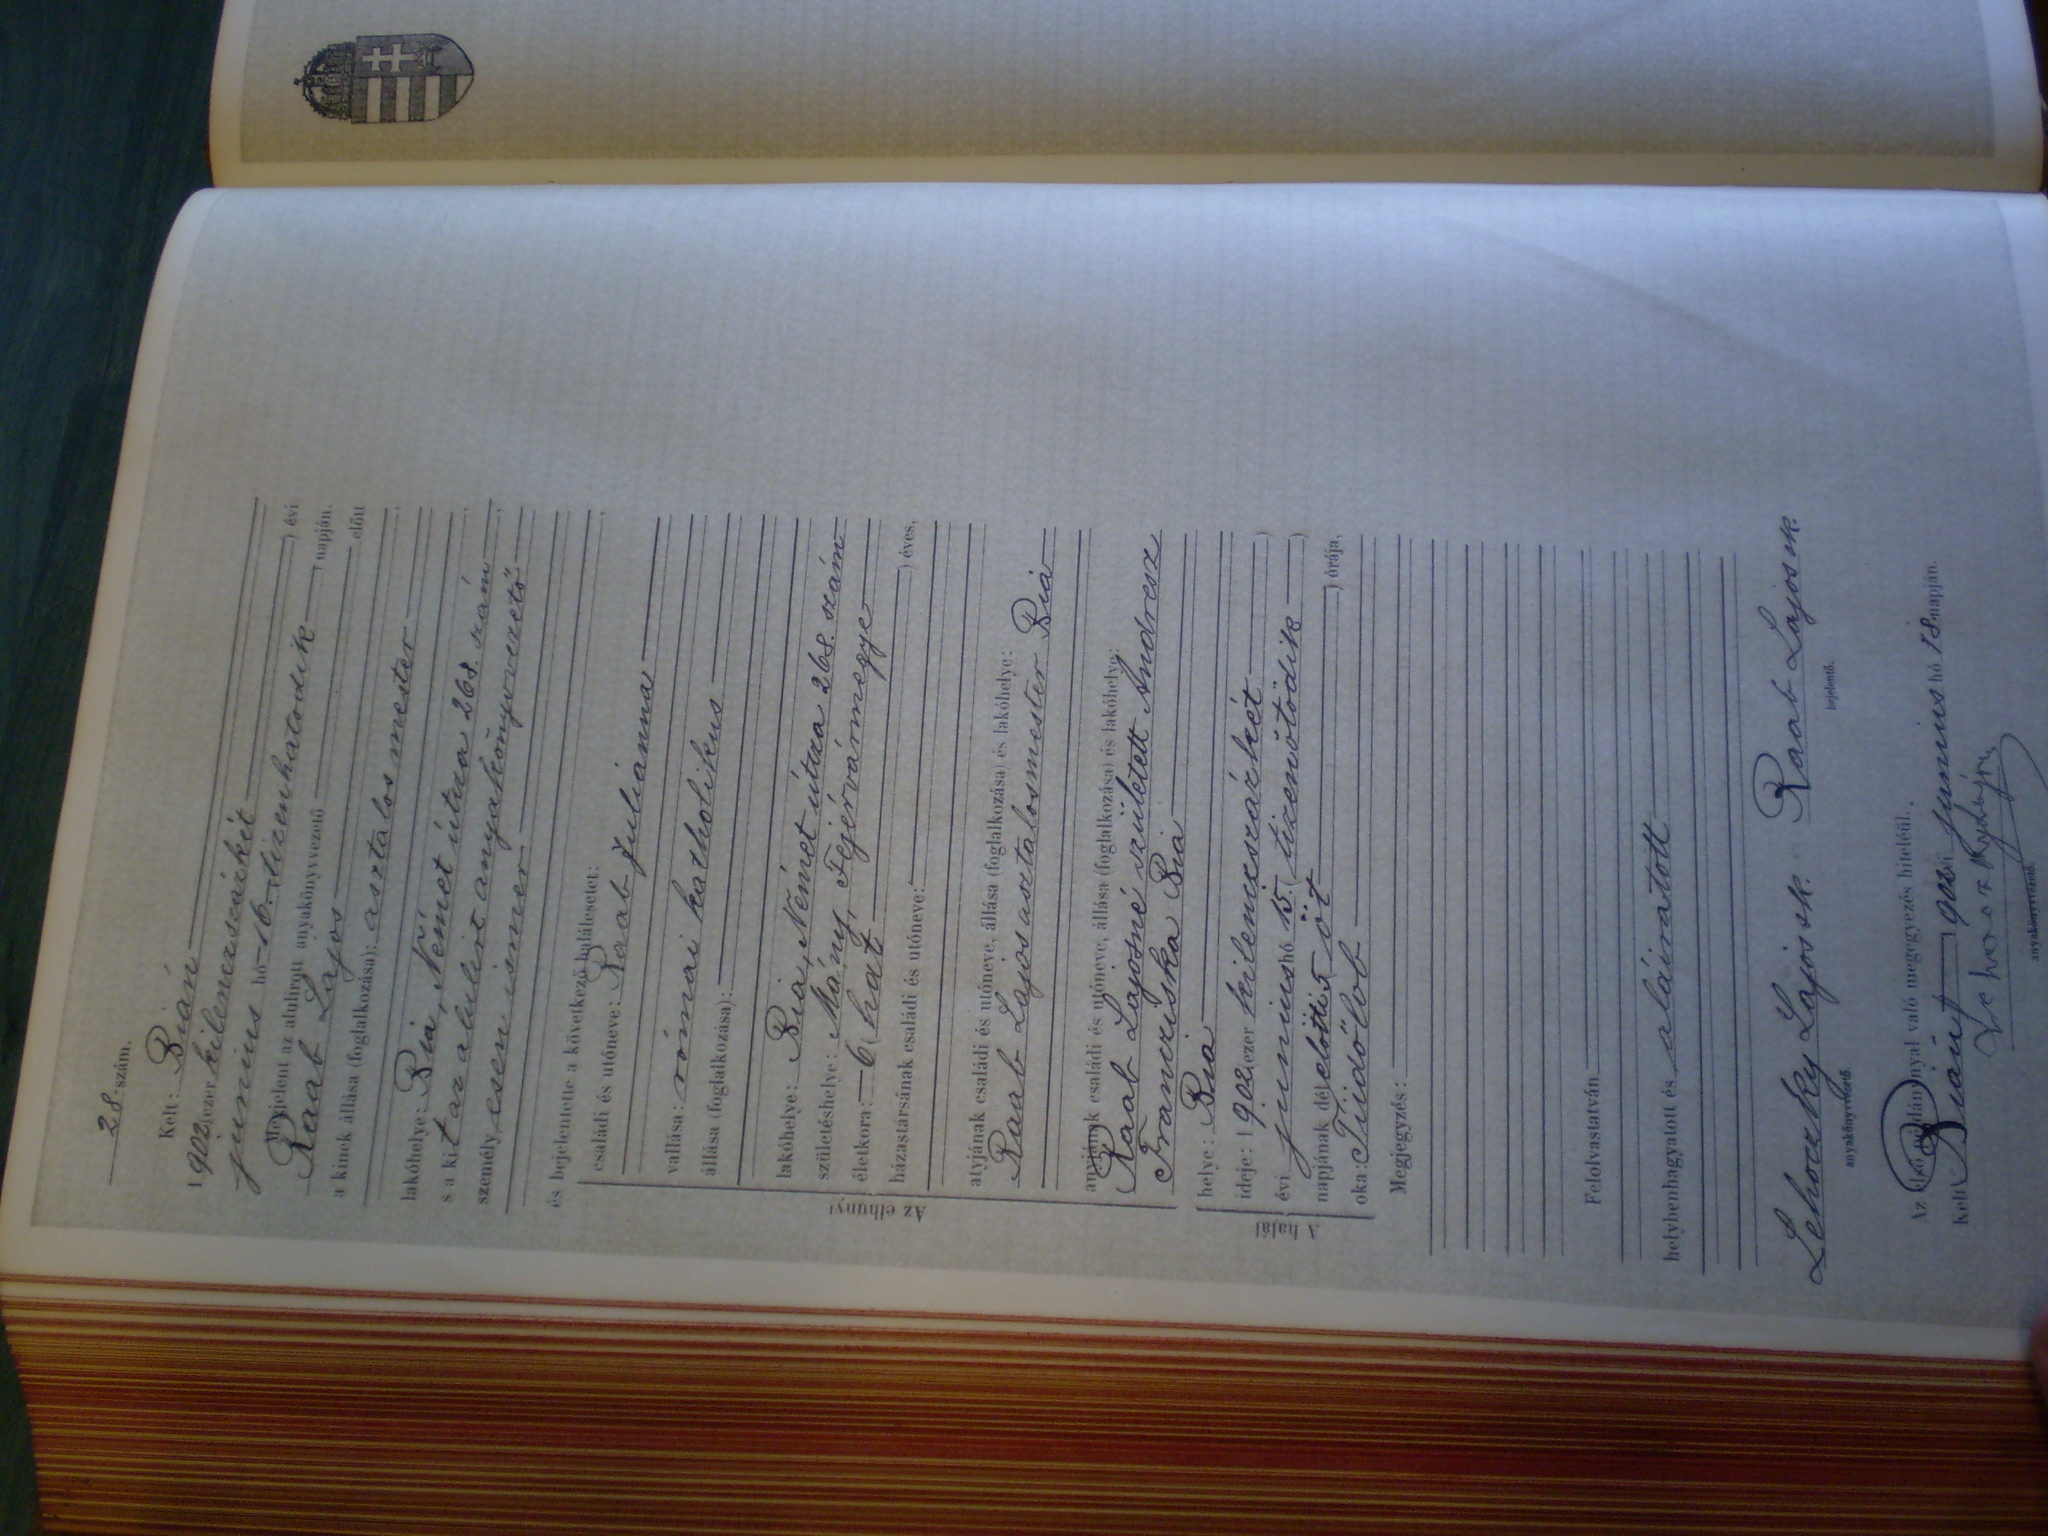 28. szám.
Kelt: Bián
1902 (ezer kilenczszázkét ) évi
junius hó 16. (tizenhatodik ) napján.
Megjelent az alulirott anyakönyvvezető előtt
Raab Lajos
a kinek állása (foglalkozása): asztalos mester
lakóhelye: Bia, Német útcza 268. szám
s a kit az alulirt anyakönyvvezető
személyesen ismer
és bejelentette a következő halálesetet:
Az elhunyt
családi és utóneve: Raab Julianna
vallása: római katholikus
állása (foglalkozása):
lakóhelye: Bia, Német útcza 268. szám
születéshelye: Mány, Fejérvármegye
életkora: 6 ( hat ) éves,
házastársának családi és utóneve:
atyjának családi és utóneve, állása (foglalkozása) és lakóhelye:
Raab Lajos asztalosmester Bia
anyjának családi és utóneve, állása (foglalkozása) és lakóhelye:
Raab Lajosné született Andresz
Francziska Bia
A halál
helye: Bia
ideje: 1902 (ezer kilenczszázkét )
évi junius hó 15. ( tizenötödik )
napjának délelőtti 5 ( öt ) órája,
oka: Tüdőlob
Megjegyzés:
Felolvastatván
helybenhagyatott és aláiratott
Lehoczky Lajos sk. Raab Lajos sk.
anyakönyvvezető. bejelentő.
Az első példánnyal való megegyezés hiteléül.
Kelt Biánt 1902 évi junius hó 18 napján.
anyakönyvvezető.